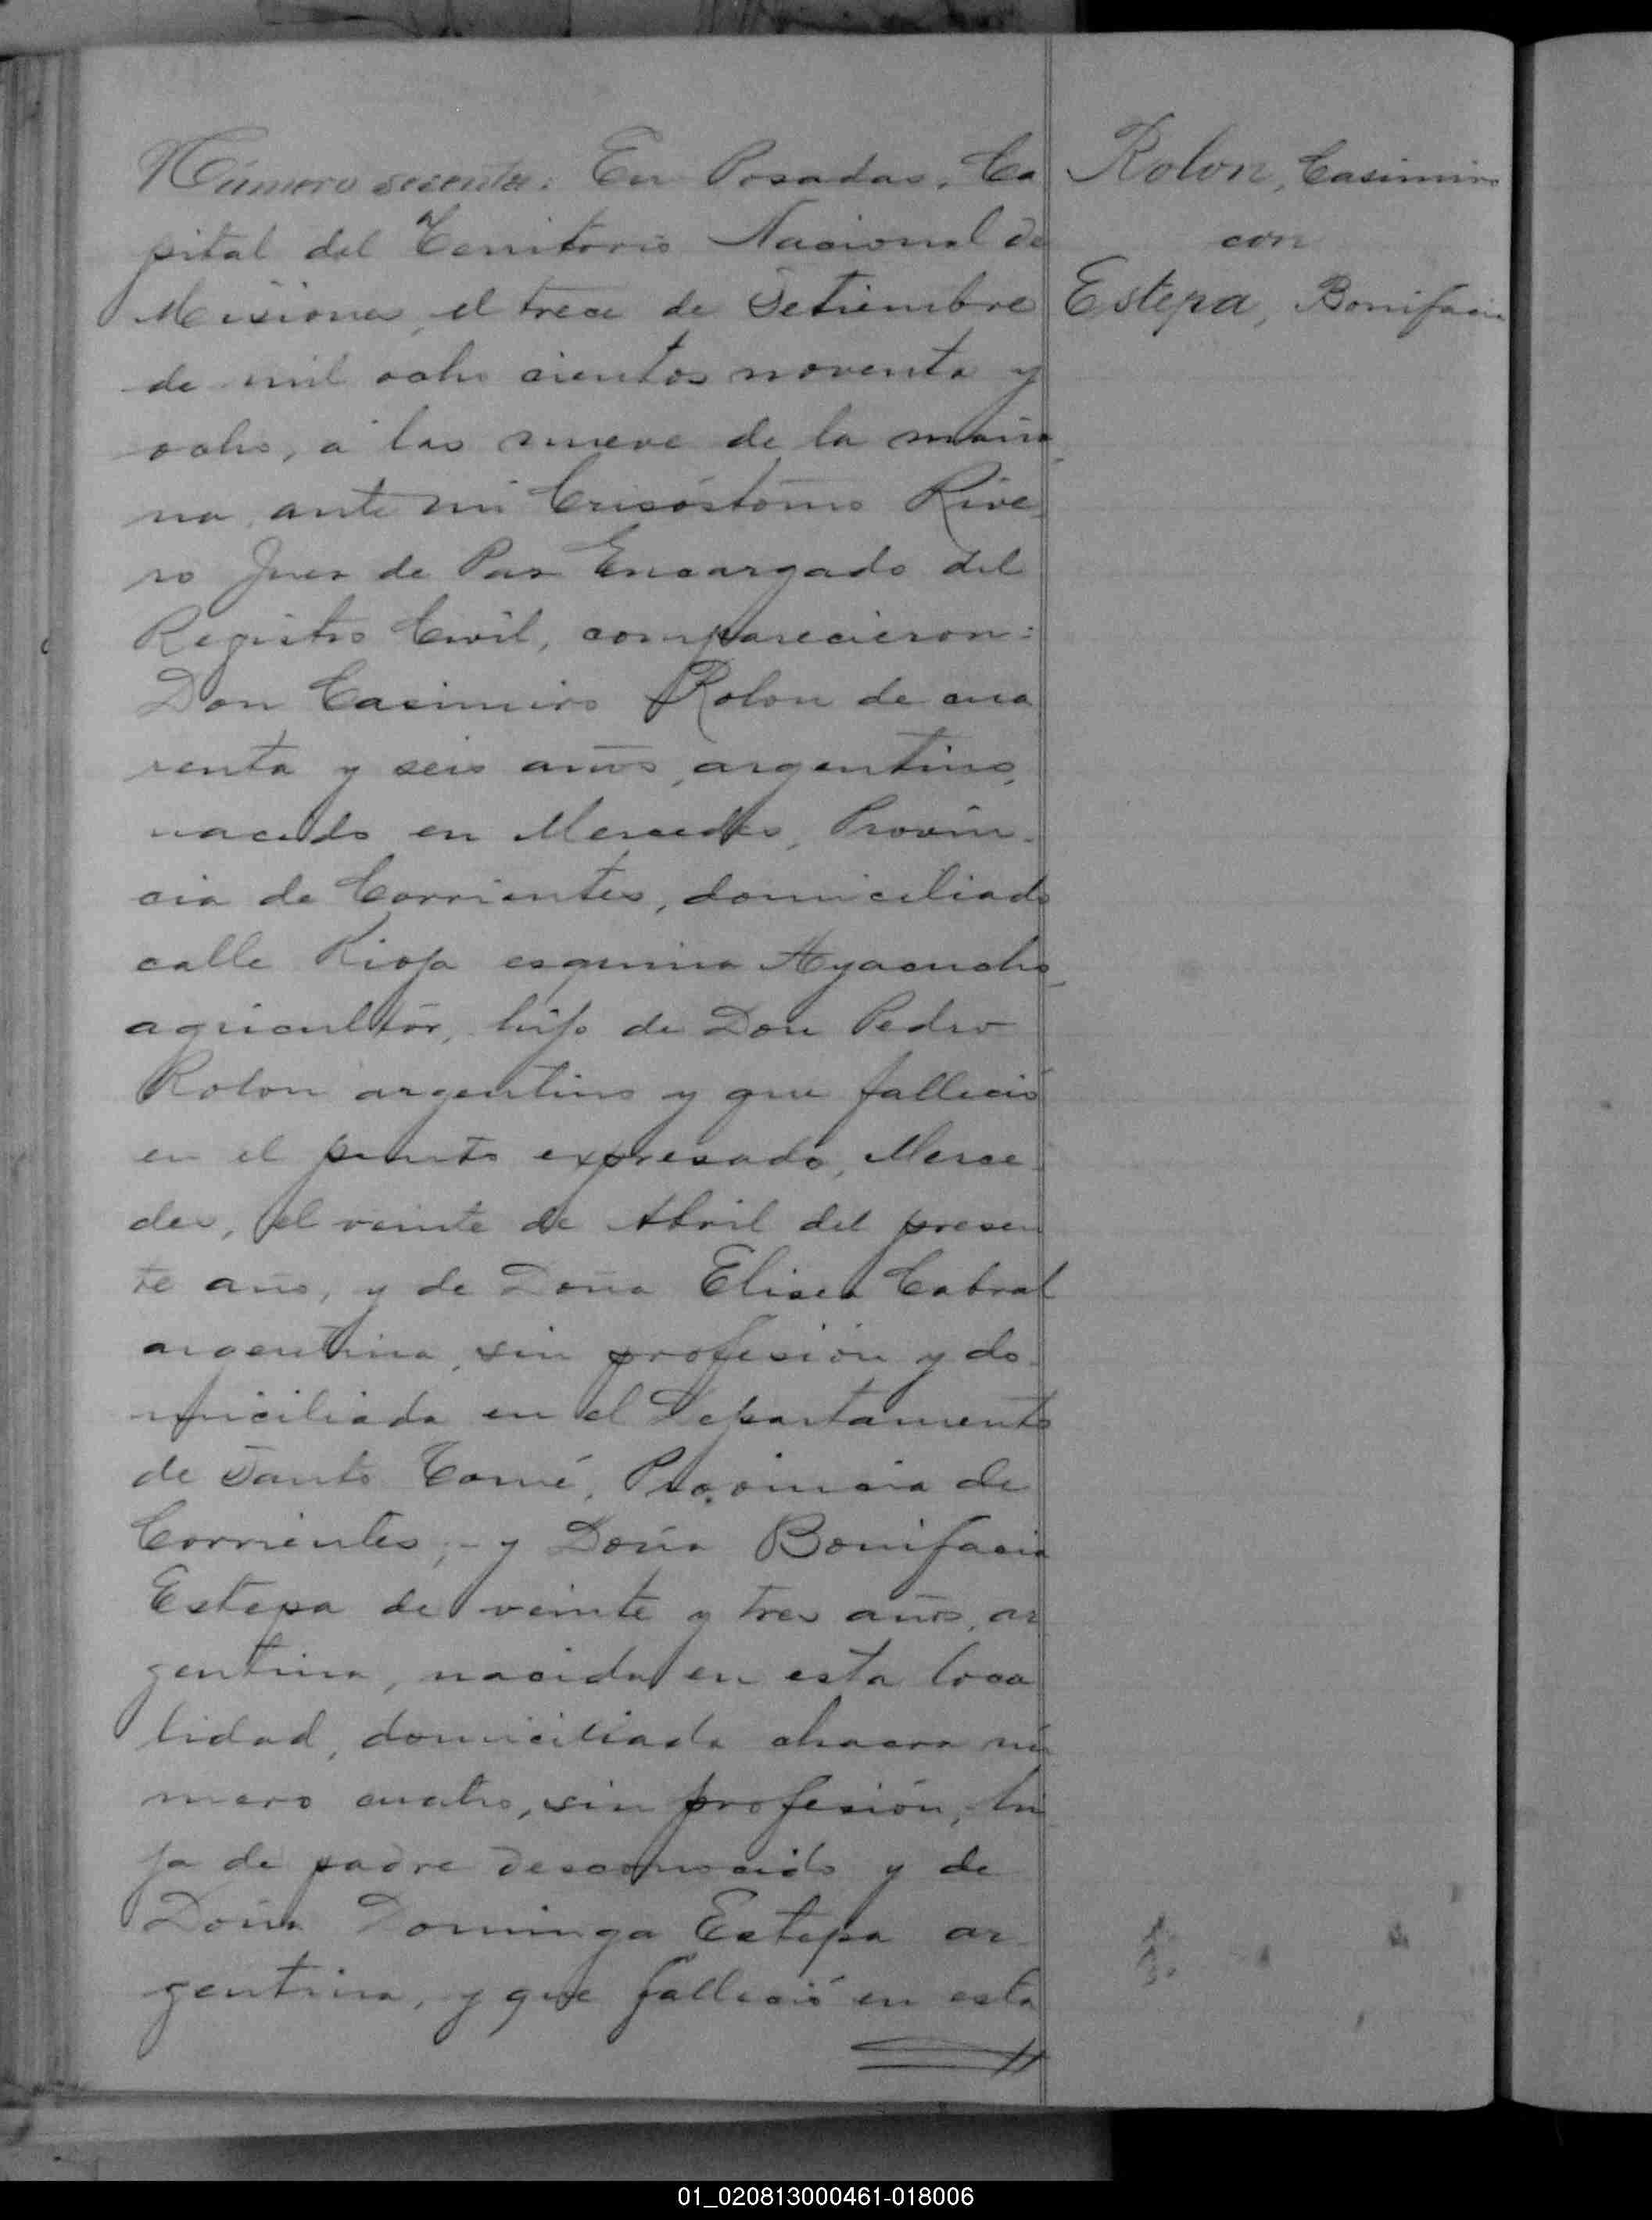 Número sesenta. En Posadas, Ca
pital del Territorio Nacional de
Misiones, el trece de Setiembre
de mil ocho cientos noventa y
ocho, á las nueve de la maña
na, ante mi Crisóstomo Rive-
ro Juez de Paz Encargado del
Registro Civil, comparecieron:
Don Casimiro Rolon de cua
renta y seis años, argentino,
nacido en Mercedes, Provin-
cia de Corrientes, domiciliado
calle Rioja esquina Ayacucho,
agricultór, hijo de Don Pedro
Rolon argentino y que falleció
en el punto expresado, Merce-
des, el veinte de Abril del presen
te año, y de Doña Elisea Cabral
argentina, sin profesión y do-
miciliada en el Departamento
de Santo Tomé, Provincia de
Corrientes, - y Doña Bonifacia
Estepa de veinte y tres años, ar
gentina, nacida en esta loca
lidad, domiciliada chacra nú
mero cuatro, sin profesión, hi
ja de padre desconocido y de
Doña Dominga Estepa ar-
gentina, y que falleció en esta
Rolon, Casimiro
con
Estepa, Bonifacia
01_020813000461-018006